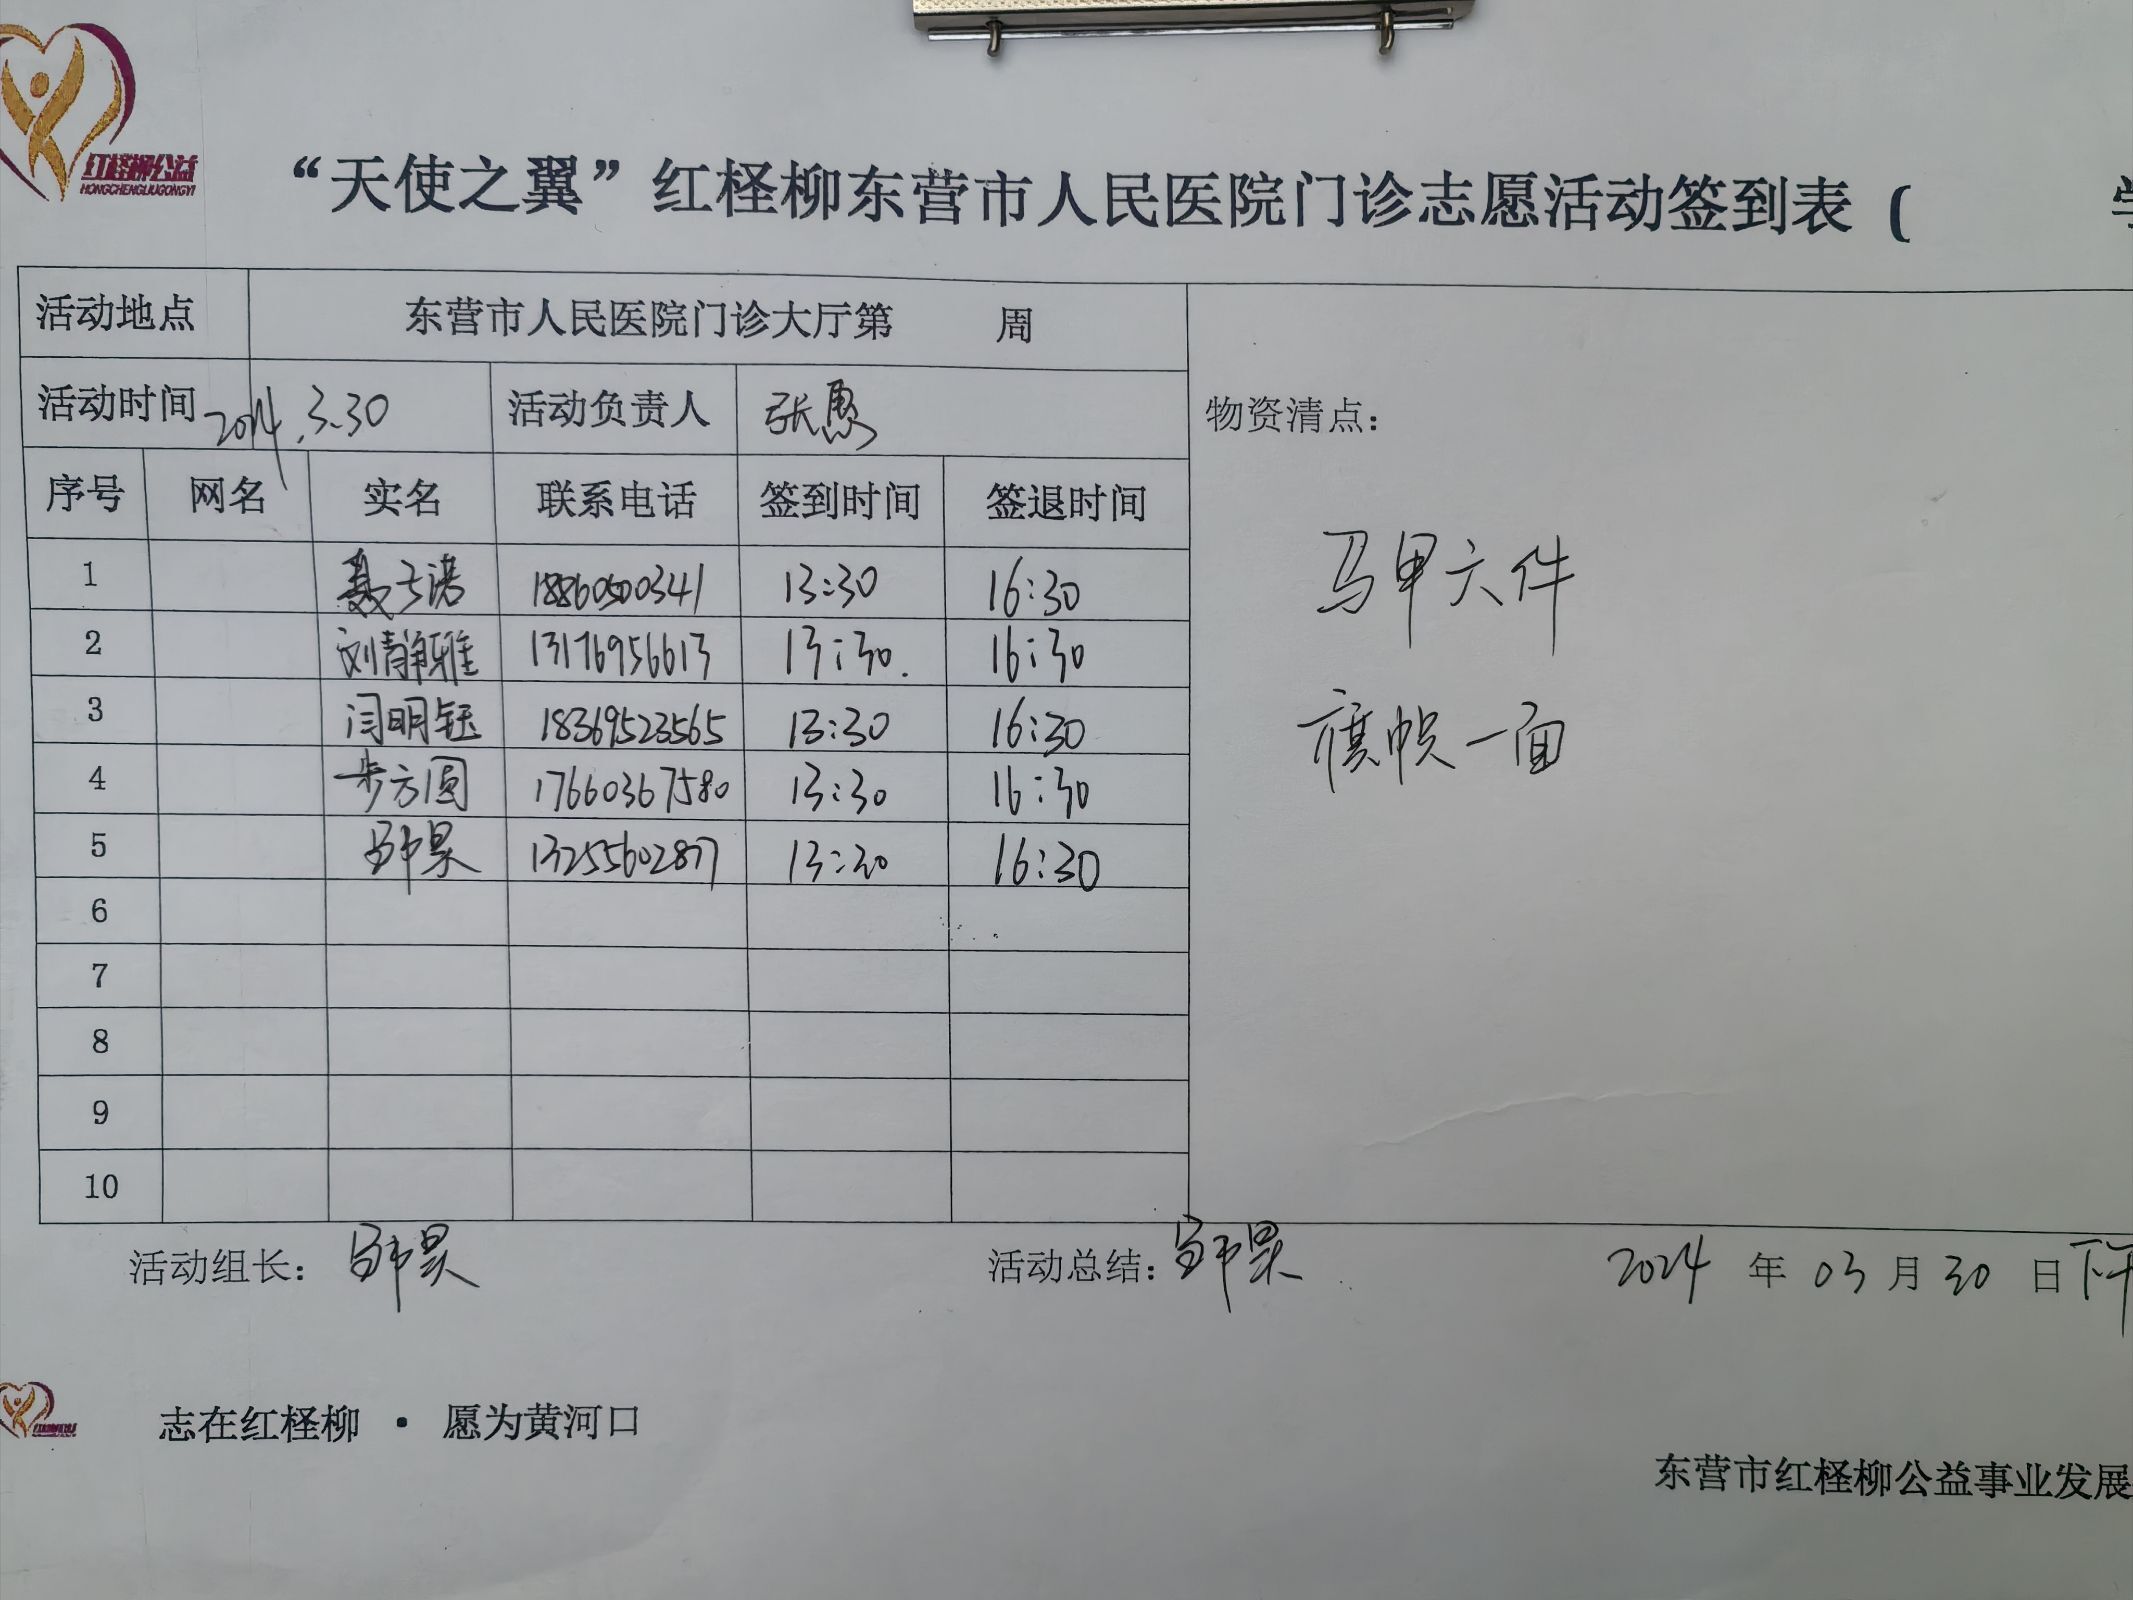 红柽柳公益
HONGCHENGLIUGONGYI
“天使之翼”红柽柳东营市人民医院门诊志愿活动签到表（
活动地点 东营市人民医院门诊大厅第 周
活动时间 2024.3.30 活动负责人 张愚
物资清点：
序号 网名 实名 联系电话 签到时间 签退时间
1 聂子诺 18860500341 13:30 16:30
2 刘静雅 13176956613 13:30. 16:30
3 闫明钰 18369523565 13:30 16:30
4 步方圆 17660367580 13:30 16:30
5 昊 13255602877 13:30 16:30
6
7
8
9
10
马甲六件
旗帜一面
活动组长： 昊
活动总结： 昊
2024 年 03 月 30 日 下午
志在红柽柳 · 愿为黄河口
东营市红柽柳公益事业发展